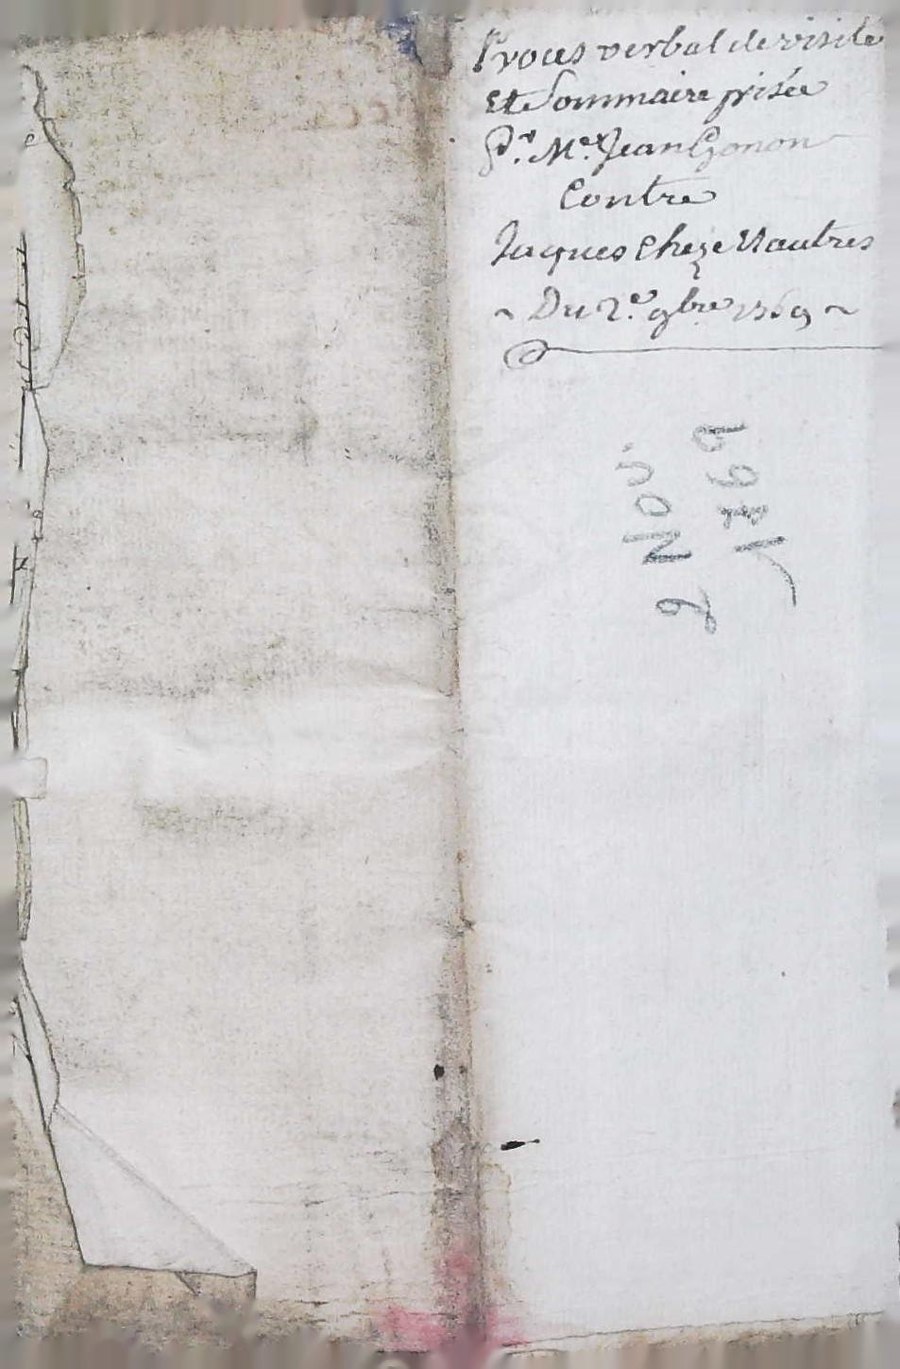 Proces verbal de visite
Et Sommaire prisée
Pr. Me. Jean Gonon
Contre
Jaques Cheze & autres
~ Du 2e. 9bre 1769 ~
2 Nov.
1769